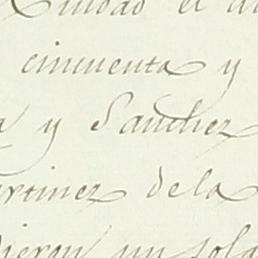 Ciudad el
cincuenta y
y Sanchez
rtinez de la
dieron un sola